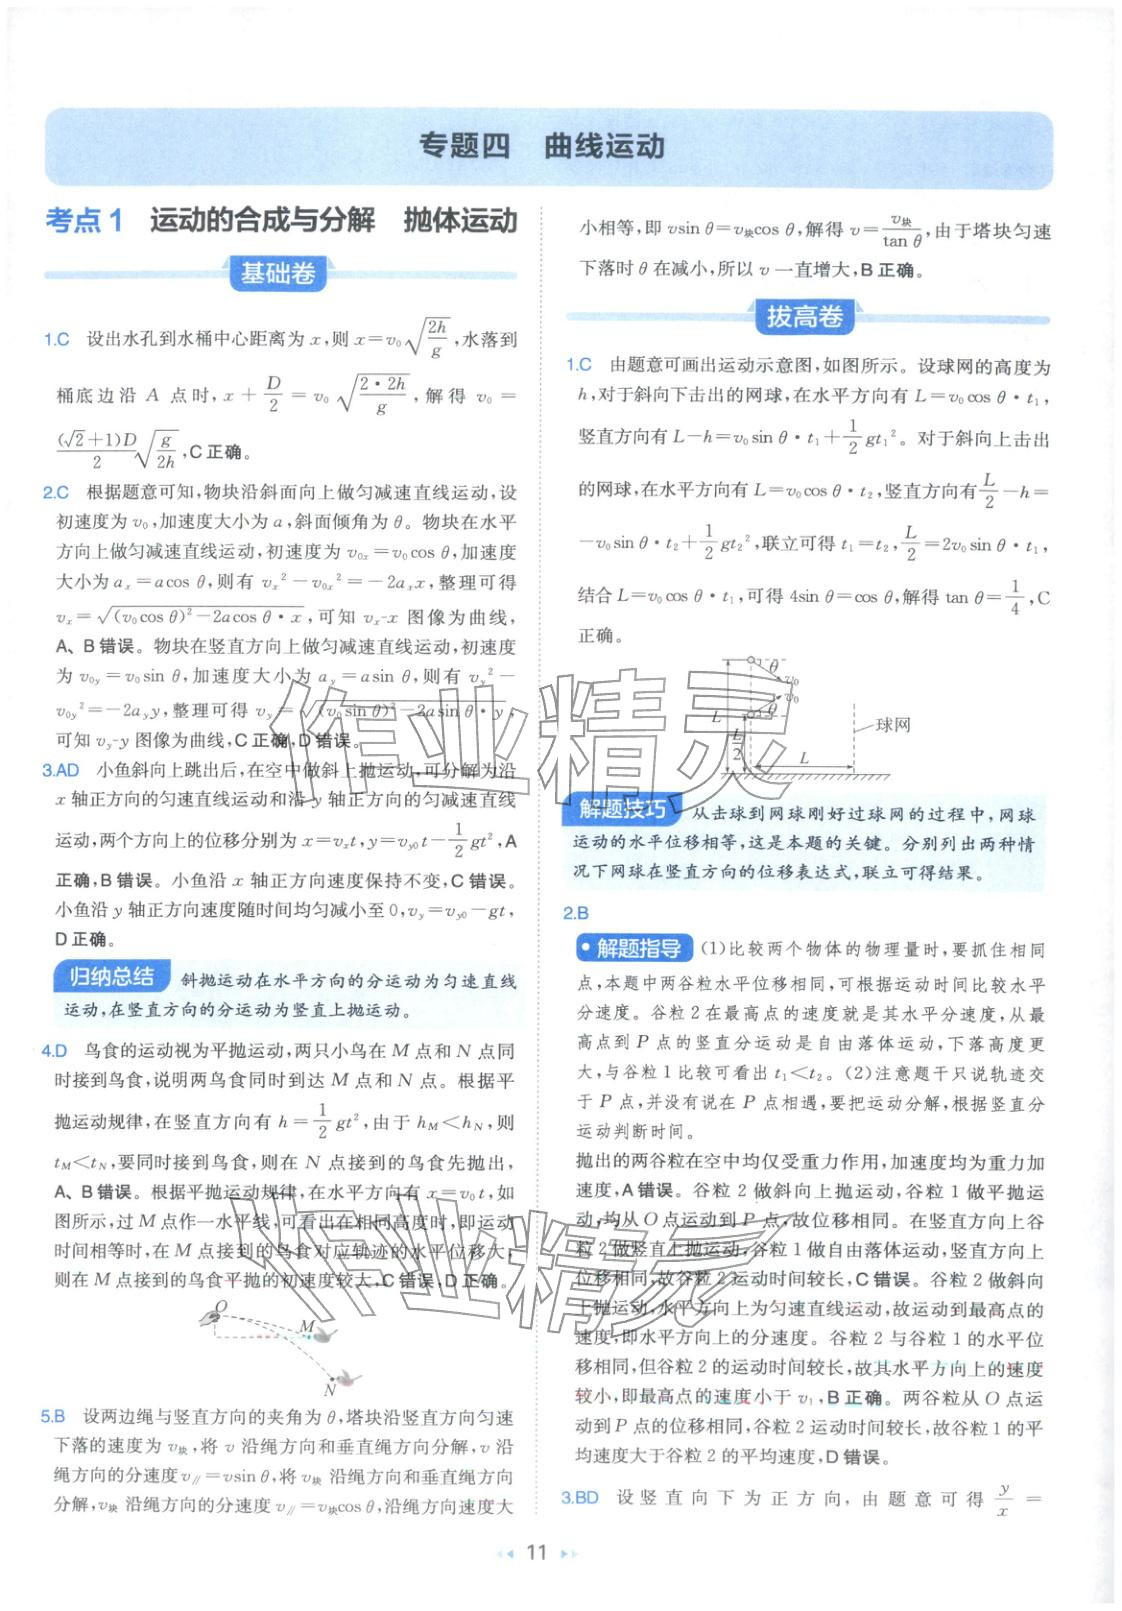 专题四 曲线运动
考点1 运动的合成与分解 抛体运动
基础卷
1.C 设出水孔到水桶中心距离为 x,则 x=v₀√(2h/g),水落到
桶底边沿 A 点时,x+D/2=v₀√(2·2h/g),解得 v₀=
(√2+1)D/2 √(g/2h),C正确。
2.C 根据题意可知,物块沿斜面向上做匀减速直线运动,设
初速度为 v₀,加速度大小为 a,斜面倾角为 θ。物块在水平
方向上做匀减速直线运动,初速度为 v₀ₓ=v₀cos θ,加速度
大小为 aₓ=acos θ,则有 vₓ²-v₀ₓ²=-2aₓx,整理可得
vₓ=√((v₀cos θ)²-2acos θ·x),可知 vₓ-x 图像为曲线,
A、B错误。物块在竖直方向上做匀减速直线运动,初速度
为 v₀y=v₀sin θ,加速度大小为 ay=asin θ,则有 vy²-
v₀y²=-2ayy,整理可得 vy=√((v₀sin θ)²-2asin θ·y),
可知 vy-y 图像为曲线,C正确,D错误。
3.AD 小鱼斜向上跳出后,在空中做斜上抛运动,可分解为沿
x 轴正方向的匀速直线运动和沿 y 轴正方向的匀减速直线
运动,两个方向上的位移分别为 x=vₓt,y=vy0t-1/2gt²,A
正确,B错误。小鱼沿 x 轴正方向速度保持不变,C错误。
小鱼沿 y 轴正方向速度随时间均匀减小至0,vy=vy0-gt,
D正确。
归纳总结 斜抛运动在水平方向的分运动为匀速直线
运动,在竖直方向的分运动为竖直上抛运动。
4.D 鸟食的运动视为平抛运动,两只小鸟在 M 点和 N 点同
时接到鸟食,说明两鸟食同时到达 M 点和 N 点。根据平
抛运动规律,在竖直方向有 h=1/2gt²,由于 hM<hN,则
tM<tN,要同时接到鸟食,则在 N 点接到的鸟食先抛出,
A、B错误。根据平抛运动规律,在水平方向有 x=v₀t,如
图所示,过 M 点作一水平线,可看出在相同高度时,即运动
时间相等时,在 M 点接到的鸟食对应轨迹的水平位移大,
则在 M 点接到的鸟食平抛的初速度较大,C错误,D正确。
O
M
N
5.B 设两边绳与竖直方向的夹角为 θ,塔块沿竖直方向匀速
下落的速度为 v块,将 v 沿绳方向和垂直绳方向分解,v 沿
绳方向的分速度 v∥=vsin θ,将 v块 沿绳方向和垂直绳方向
分解,v块 沿绳方向的分速度 v∥=v块cos θ,沿绳方向速度大
小相等,即 vsin θ=v块cos θ,解得 v=v块/tan θ,由于塔块匀速
下落时 θ 在减小,所以 v 一直增大,B正确。
拔高卷
1.C 由题意可画出运动示意图,如图所示。设球网的高度为
h,对于斜向下击出的网球,在水平方向有 L=v₀cos θ·t₁,
竖直方向有 L-h=v₀sin θ·t₁+1/2gt₁²。对于斜向上击出
的网球,在水平方向有 L=v₀cos θ·t₂,竖直方向有L/2-h=
-v₀sin θ·t₂+1/2gt₂²,联立可得 t₁=t₂,L/2=2v₀sin θ·t₁,
结合 L=v₀cos θ·t₁,可得 4sin θ=cos θ,解得 tan θ=1/4,C
正确。
θ
v₀
v₀
θ
L
L/2
L
球网
解题技巧 从击球到网球刚好过球网的过程中,网球
运动的水平位移相等,这是本题的关键。分别列出两种情
况下网球在竖直方向的位移表达式,联立可得结果。
2.B
解题指导 (1)比较两个物体的物理量时,要抓住相同
点,本题中两谷粒水平位移相同,可根据运动时间比较水平
分速度。谷粒2在最高点的速度就是其水平分速度,从最
高点到 P 点的竖直分运动是自由落体运动,下落高度更
大,与谷粒1比较可看出 t₁<t₂。(2)注意题干只说轨迹交
于 P 点,并没有说在 P 点相遇,要把运动分解,根据竖直分
运动判断时间。
抛出的两谷粒在空中均仅受重力作用,加速度均为重力加
速度,A错误。谷粒2做斜向上抛运动,谷粒1做平抛运
动,均从 O 点运动到 P 点,故位移相同。在竖直方向上谷
粒2做竖直上抛运动,谷粒1做自由落体运动,竖直方向上
位移相同,故谷粒2运动时间较长,C错误。谷粒2做斜向
上抛运动,水平方向上为匀速直线运动,故运动到最高点的
速度,即水平方向上的分速度。谷粒2与谷粒1的水平位
移相同,但谷粒2的运动时间较长,故其水平方向上的速度
较小,即最高点的速度小于 v₁,B正确。两谷粒从 O 点运
动到 P 点的位移相同,谷粒2运动时间较长,故谷粒1的平
均速度大于谷粒2的平均速度,D错误。
3.BD 设竖直向下为正方向,由题意可得 y/x=
11
作业精灵
作业精灵